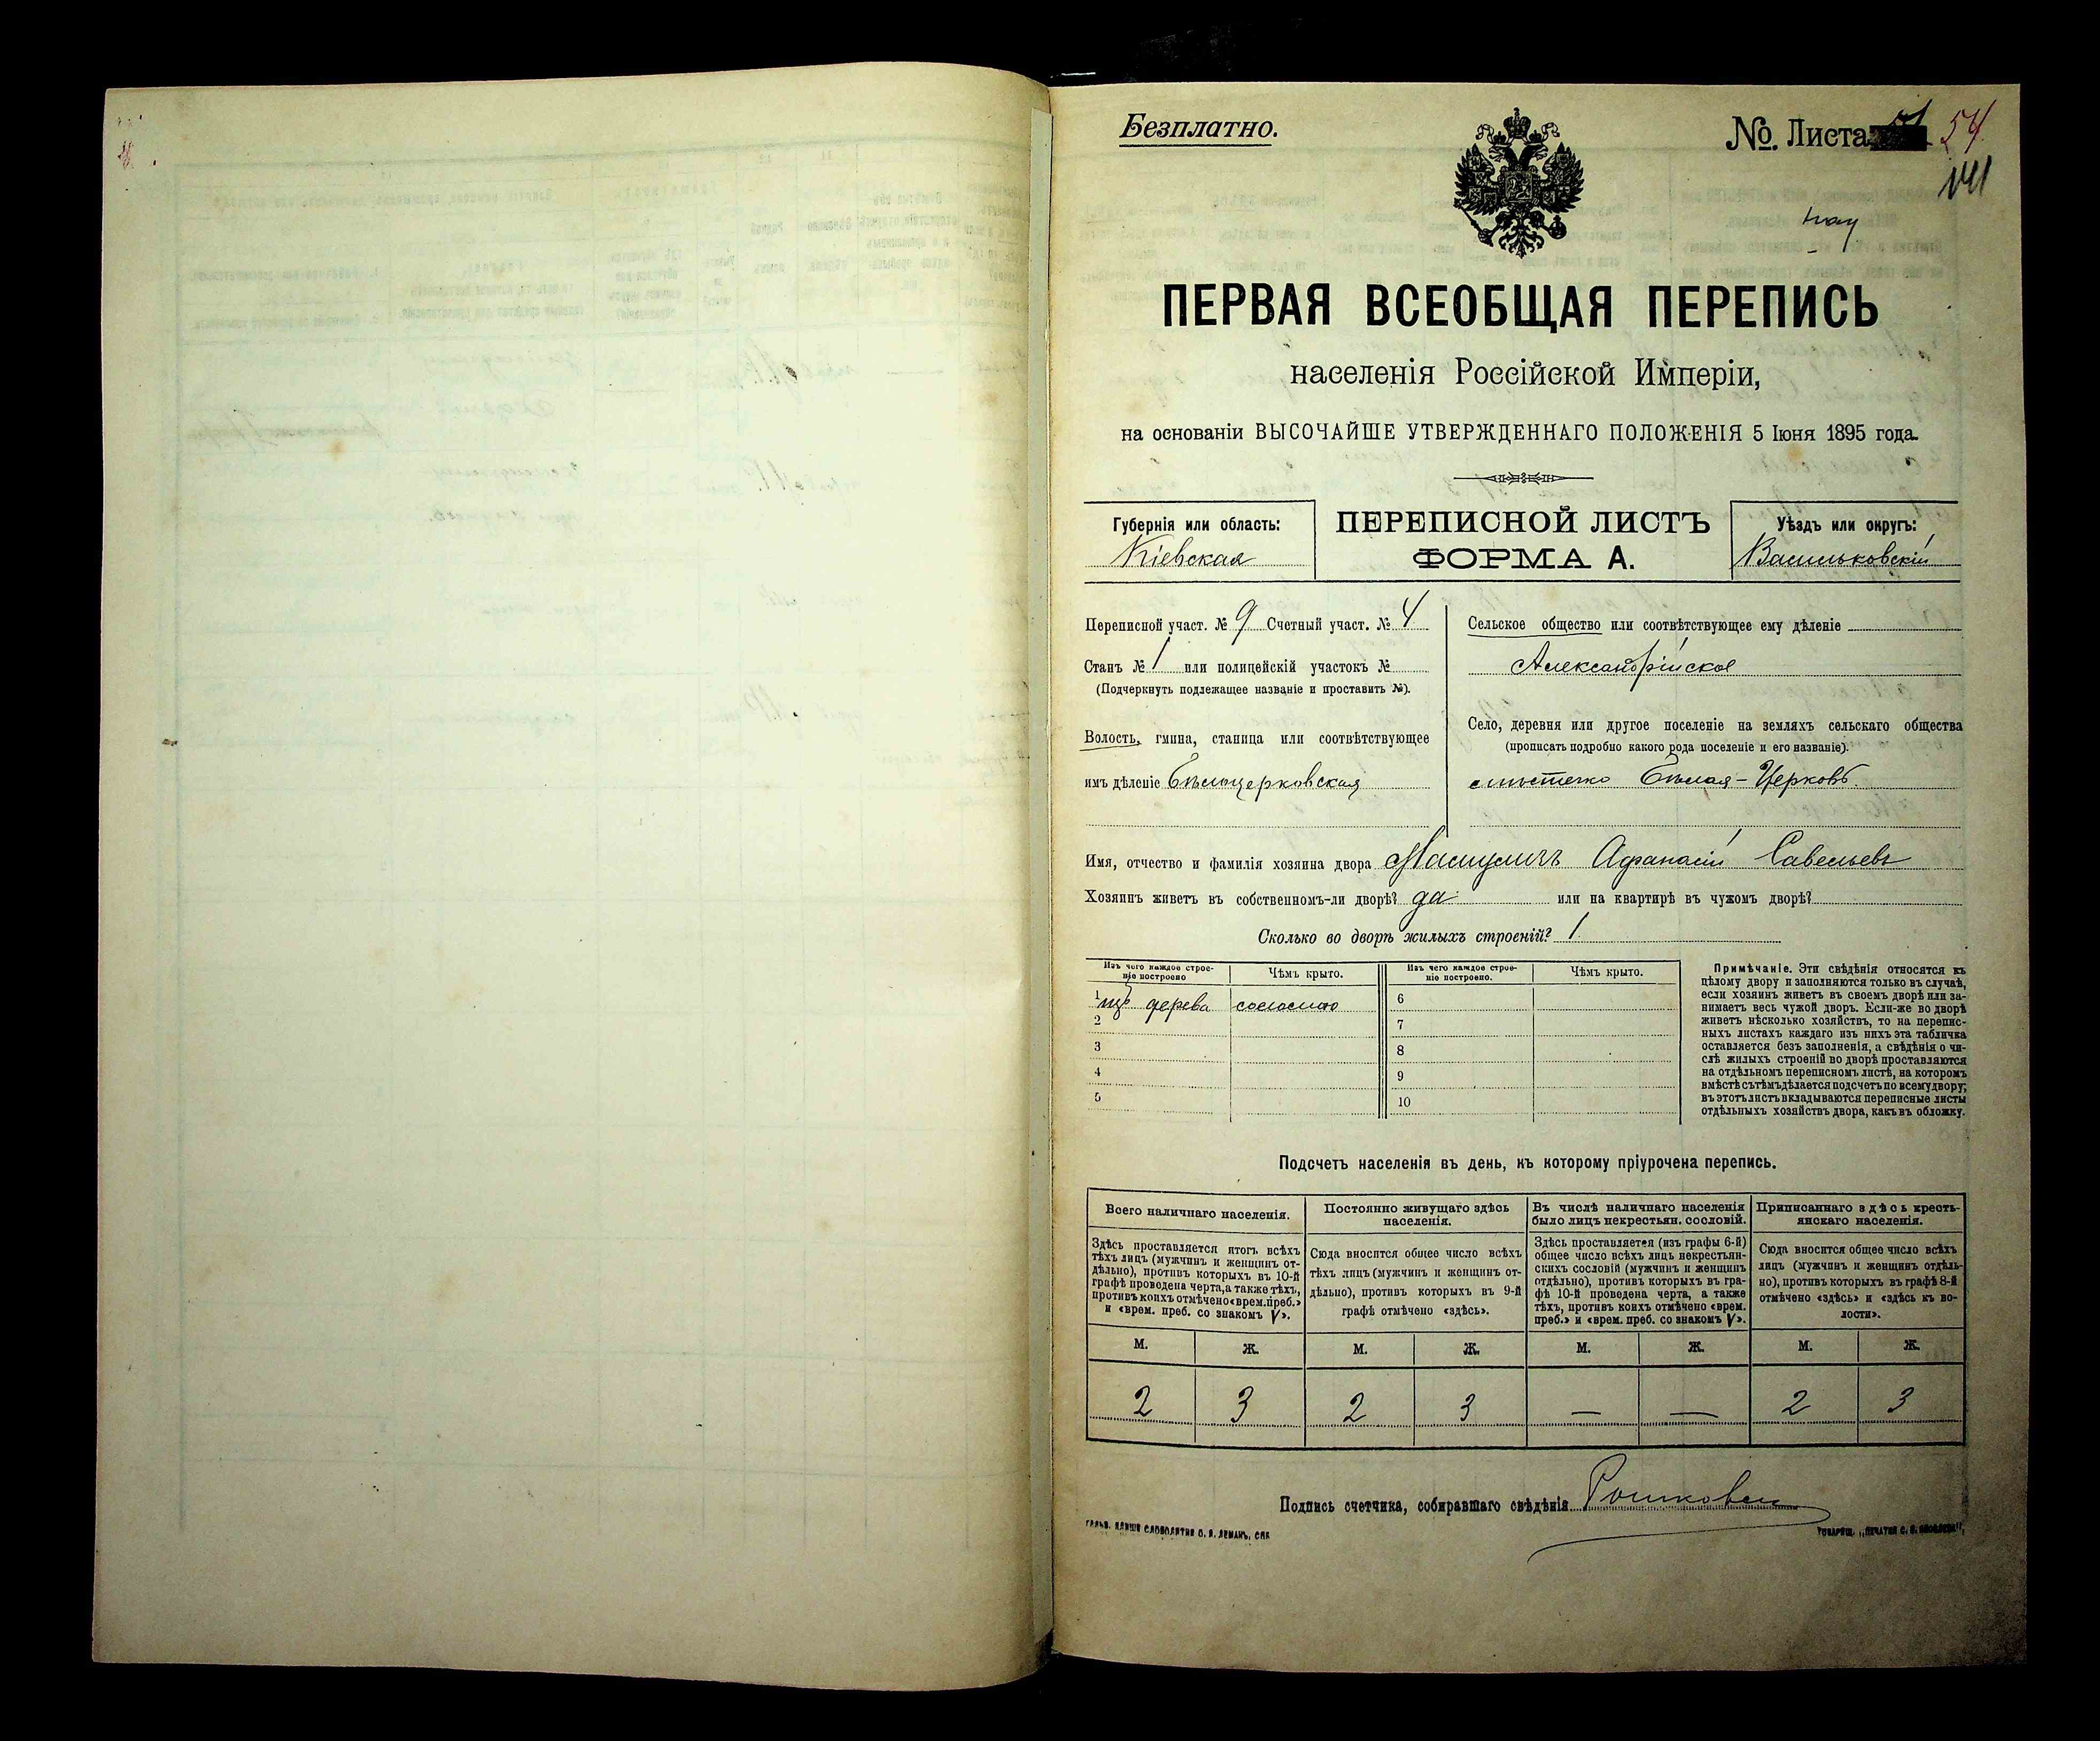 Безплатно.
№. Листа 54
141
ПЕРВАЯ ВСЕОБЩАЯ ПЕРЕПИСЬ
населенія Россійской Имперіи,
на основаніи ВЫСОЧАЙШЕ УТВЕРЖДЕННАГО ПОЛОЖЕНІЯ 5 Іюня 1895 года.
Губернія или область:
Кіевская
ПЕРЕПИСНОЙ ЛИСТЪ
ФОРМА А.
Уѣздъ или округъ:
Васильковскій
Переписной участ. № 9 Счетный участ. № 4
Станъ № 1 или полицейскій участокъ №
(Подчеркнуть подлежащее названіе и проставить №).
Волость, гмина, станица или соотвѣтствующее
имъ дѣленіе Бѣлоцерковская
Сельское общество или соотвѣтствующее ему дѣленіе
Александрійское
Село, деревня или другое поселеніе на земляхъ сельскаго общества
(прописать подробно какого рода поселеніе и его названіе).
мѣстечко Бѣлая-Церковь.
Имя, отчество и фамилія хозяина двора Афанасій Савельевъ
Хозяинъ живетъ въ собственномъ-ли дворѣ? да или на квартирѣ въ чужомъ дворѣ?
Сколько во дворѣ жилыхъ строеній? 1
Изъ чего каждое строе-
ніе построено
Чѣмъ крыто.
Изъ чего каждое строе-
ніе построено.
Чѣмъ крыто.
1 изъ дерева соломою
2
3
4
5
6
7
8
9
10
Примѣчаніе. Эти свѣдѣнія относятся къ
цѣлому двору и заполняются только въ случаѣ,
если хозяинъ живетъ въ своемъ дворѣ или за-
нимаетъ весь чужой дворъ. Если-же во дворѣ
живетъ нѣсколько хозяйствъ, то на перепис-
ныхъ листахъ каждаго изъ нихъ эта табличка
оставляется безъ заполненія, а свѣдѣнія о чи-
слѣ жилыхъ строеній во дворѣ проставляются
на отдѣльномъ переписномъ листѣ, на которомъ
вмѣстѣ съ тѣмъ дѣлается подсчетъ по всему двору;
въ этотъ листъ вкладываются переписные листы
отдѣльныхъ хозяйствъ двора, какъ въ обложку.
Подсчетъ населенія въ день, къ которому пріурочена перепись.
Всего наличнаго населенія.
Здѣсь проставляется итогъ всѣхъ
тѣхъ лицъ (мужчинъ и женщинъ от-
дѣльно), противъ которыхъ въ 10-й
графѣ проведена черта, а также тѣхъ,
противъ коихъ отмѣчено «врем. преб.»
и «врем. преб. со знакомъ V».
Постоянно живущаго здѣсь
населенія.
Сюда вносится общее число всѣхъ
тѣхъ лицъ (мужчинъ и женщинъ от-
дѣльно), противъ которыхъ въ 9-й
графѣ отмѣчено «здѣсь».
Въ числѣ наличнаго населенія
было лицъ некрестьян. сословій.
Здѣсь проставляется (изъ графы 6-й)
общее число всѣхъ лицъ некрестьян-
скихъ сословій (мужчинъ и женщинъ
отдѣльно), противъ которыхъ въ гра-
фѣ 10-й проведена черта, а также
тѣхъ, противъ коихъ отмѣчено «врем.
преб.» и «врем. преб. со знакомъ V».
Приписаннаго здѣсь кресть-
янскаго населенія.
Сюда вносится общее число всѣхъ
лицъ (мужчинъ и женщинъ отдѣль-
но), противъ которыхъ въ графѣ 8-й
отмѣчено «здѣсь» и «здѣсь къ во-
лости».
М. Ж. М. Ж. М. Ж. М. Ж.
2 3 2 3 — — 2 3
Подпись счетчика, собиравшаго свѣдѣнія